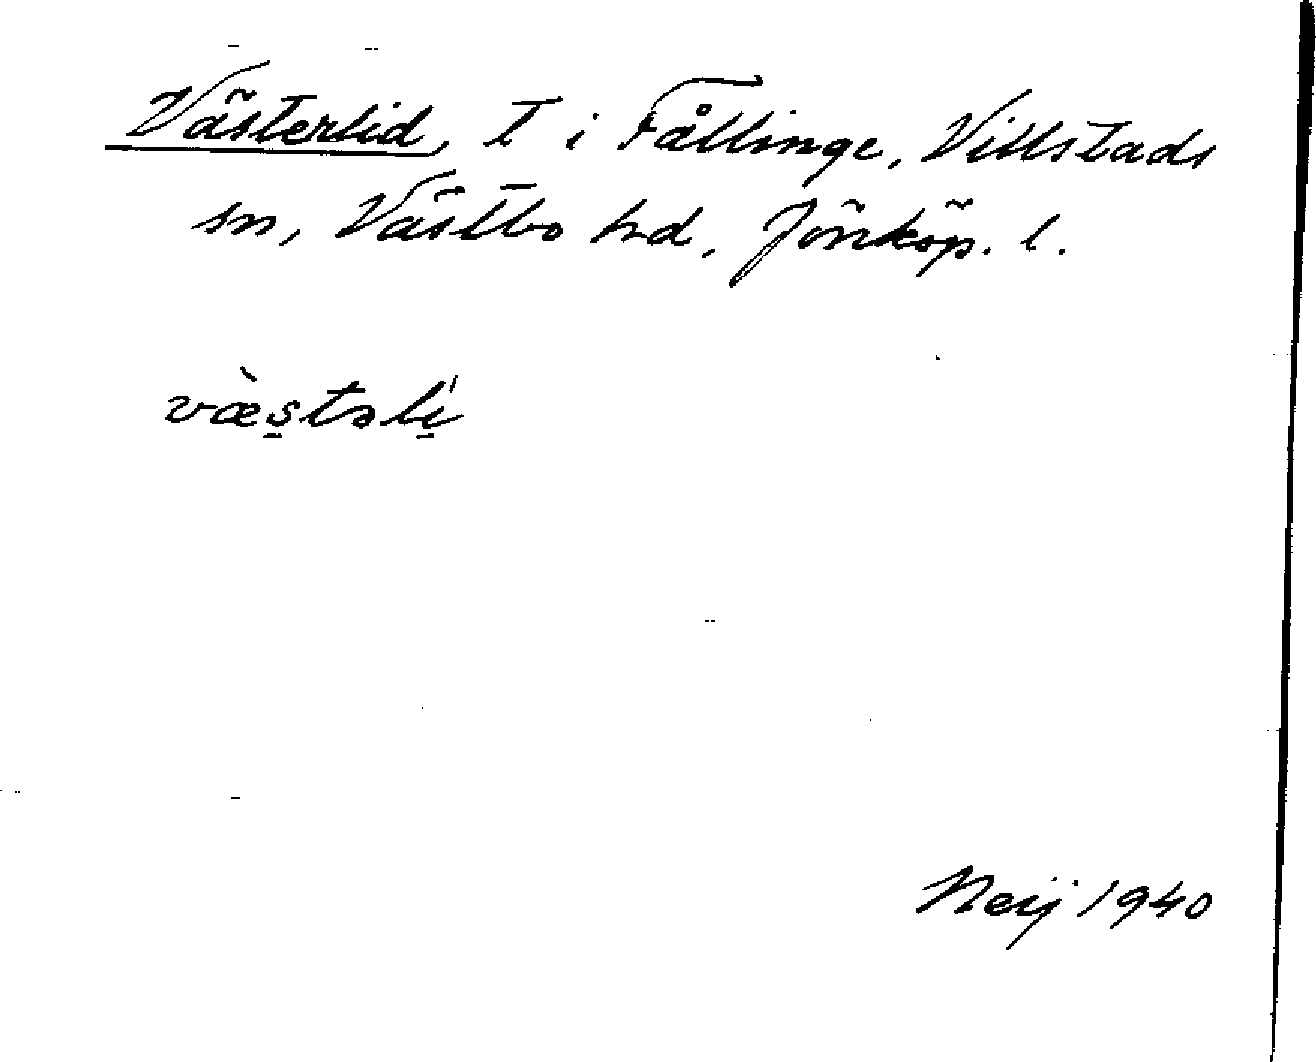 Västerlid, T i Fållinge, Villstads
sn, Västbo hd, Jönköp. l.
væ̀stəlí
Neij 1940